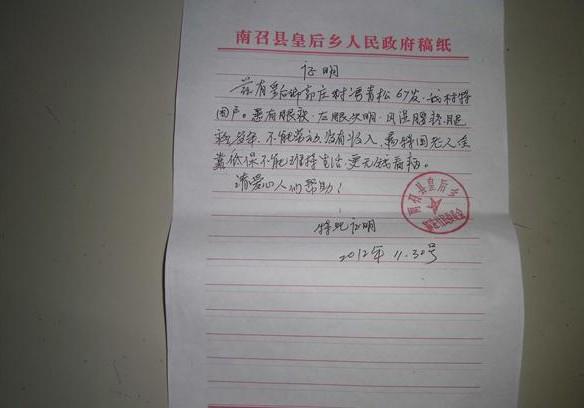 南召县皇后乡人民政府稿纸
证明
兹有皇后乡郭庄村冯青松67岁,我村特
困户。患有眼疾,左眼失明,风湿腰疼,
不能劳动,没有收入,是特困老人全
靠低保不能维持生活,更无钱看病。
请爱心人们帮助!
特此证明
2012年11.30号
南召县皇后乡